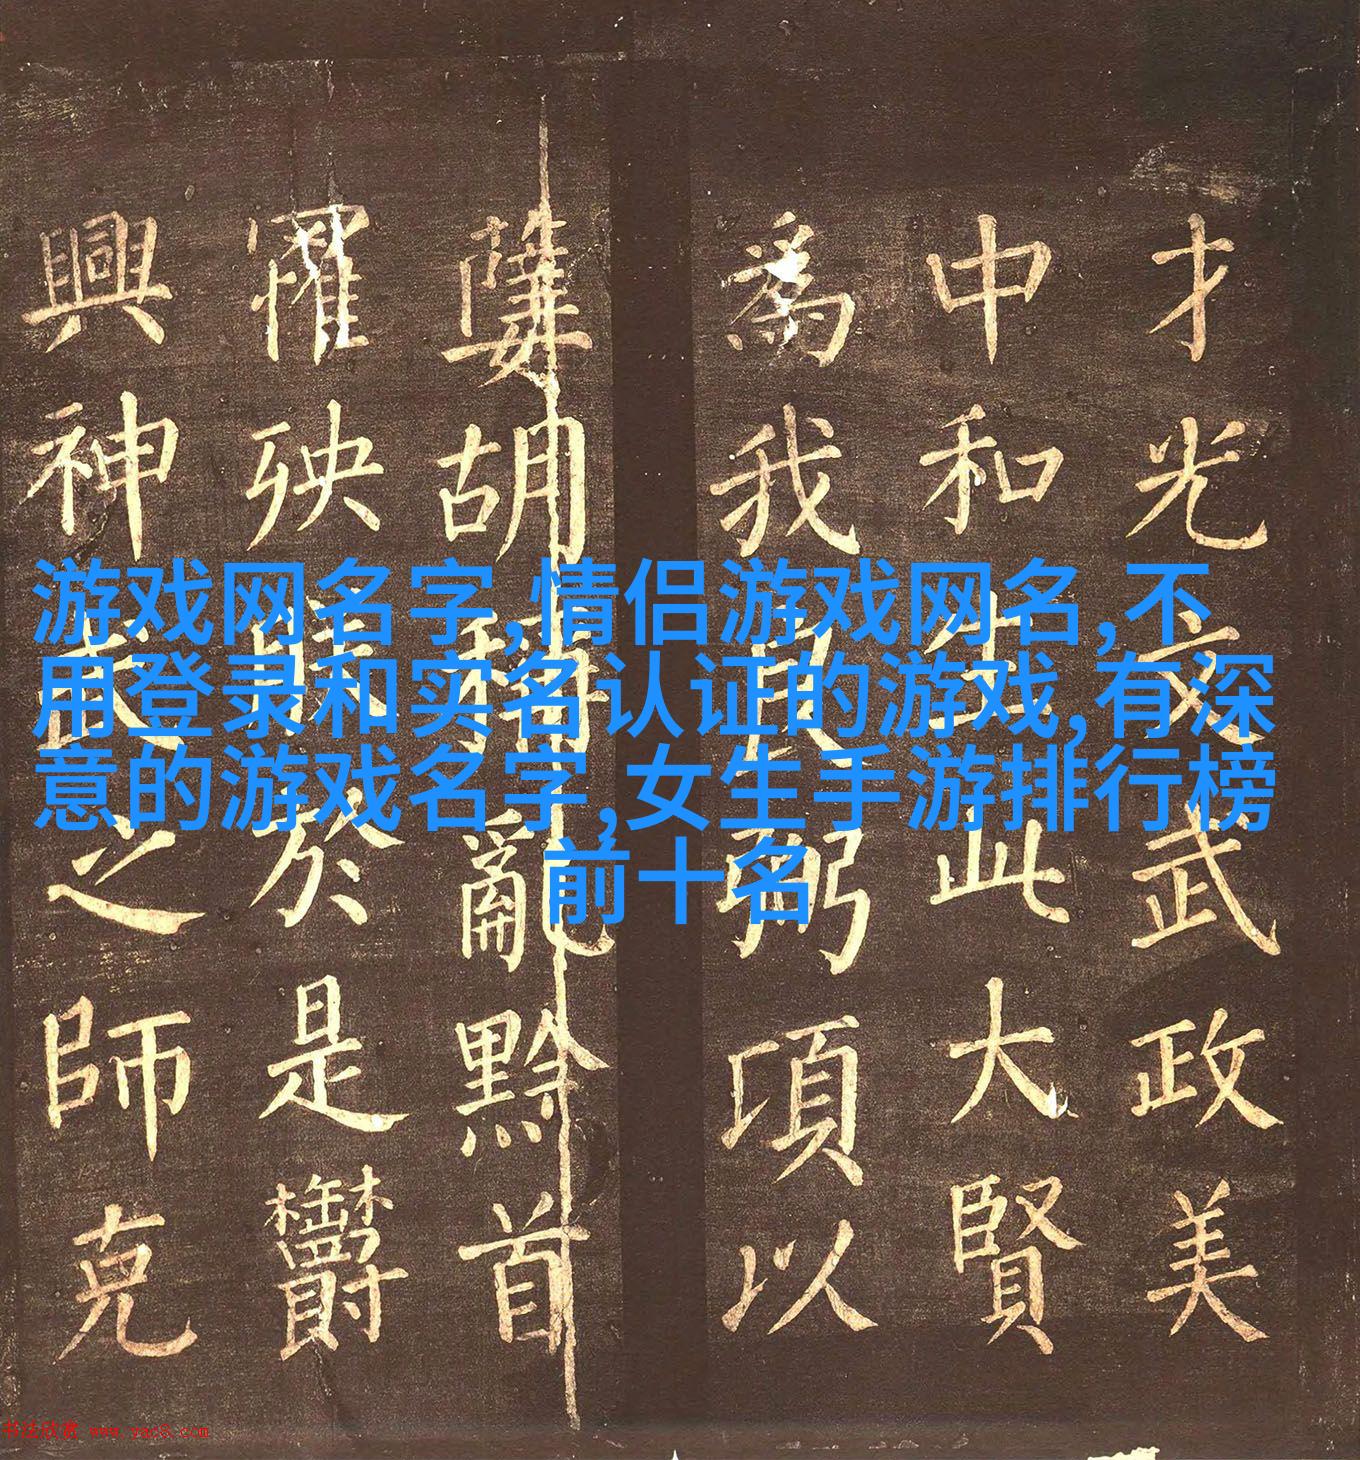 才光文武政美
中和生此大賢
為我良弼項以
胡稱亂黔首
罹殃於是
興神武之師克
游戏网名字,情侣游戏网名,不
用登录和实名认证的游戏,有深
意的游戏名字,女生手游排行榜
前十名
书法欣赏 www.yac8.com